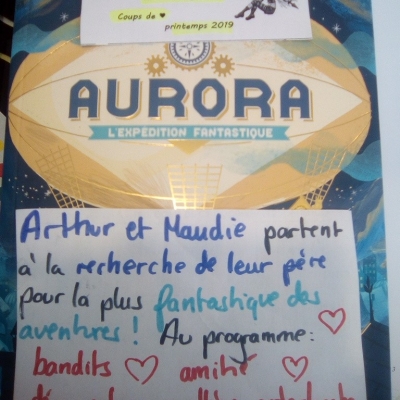 Coups de ♥
printemps 2019
AURORA
L'EXPÉDITION FANTASTIQUE
Arthur et Maudie partent
à la recherche de leur père
pour la plus fantastique des
aventures ! Au programme :
bandits ♡ amitié ♡